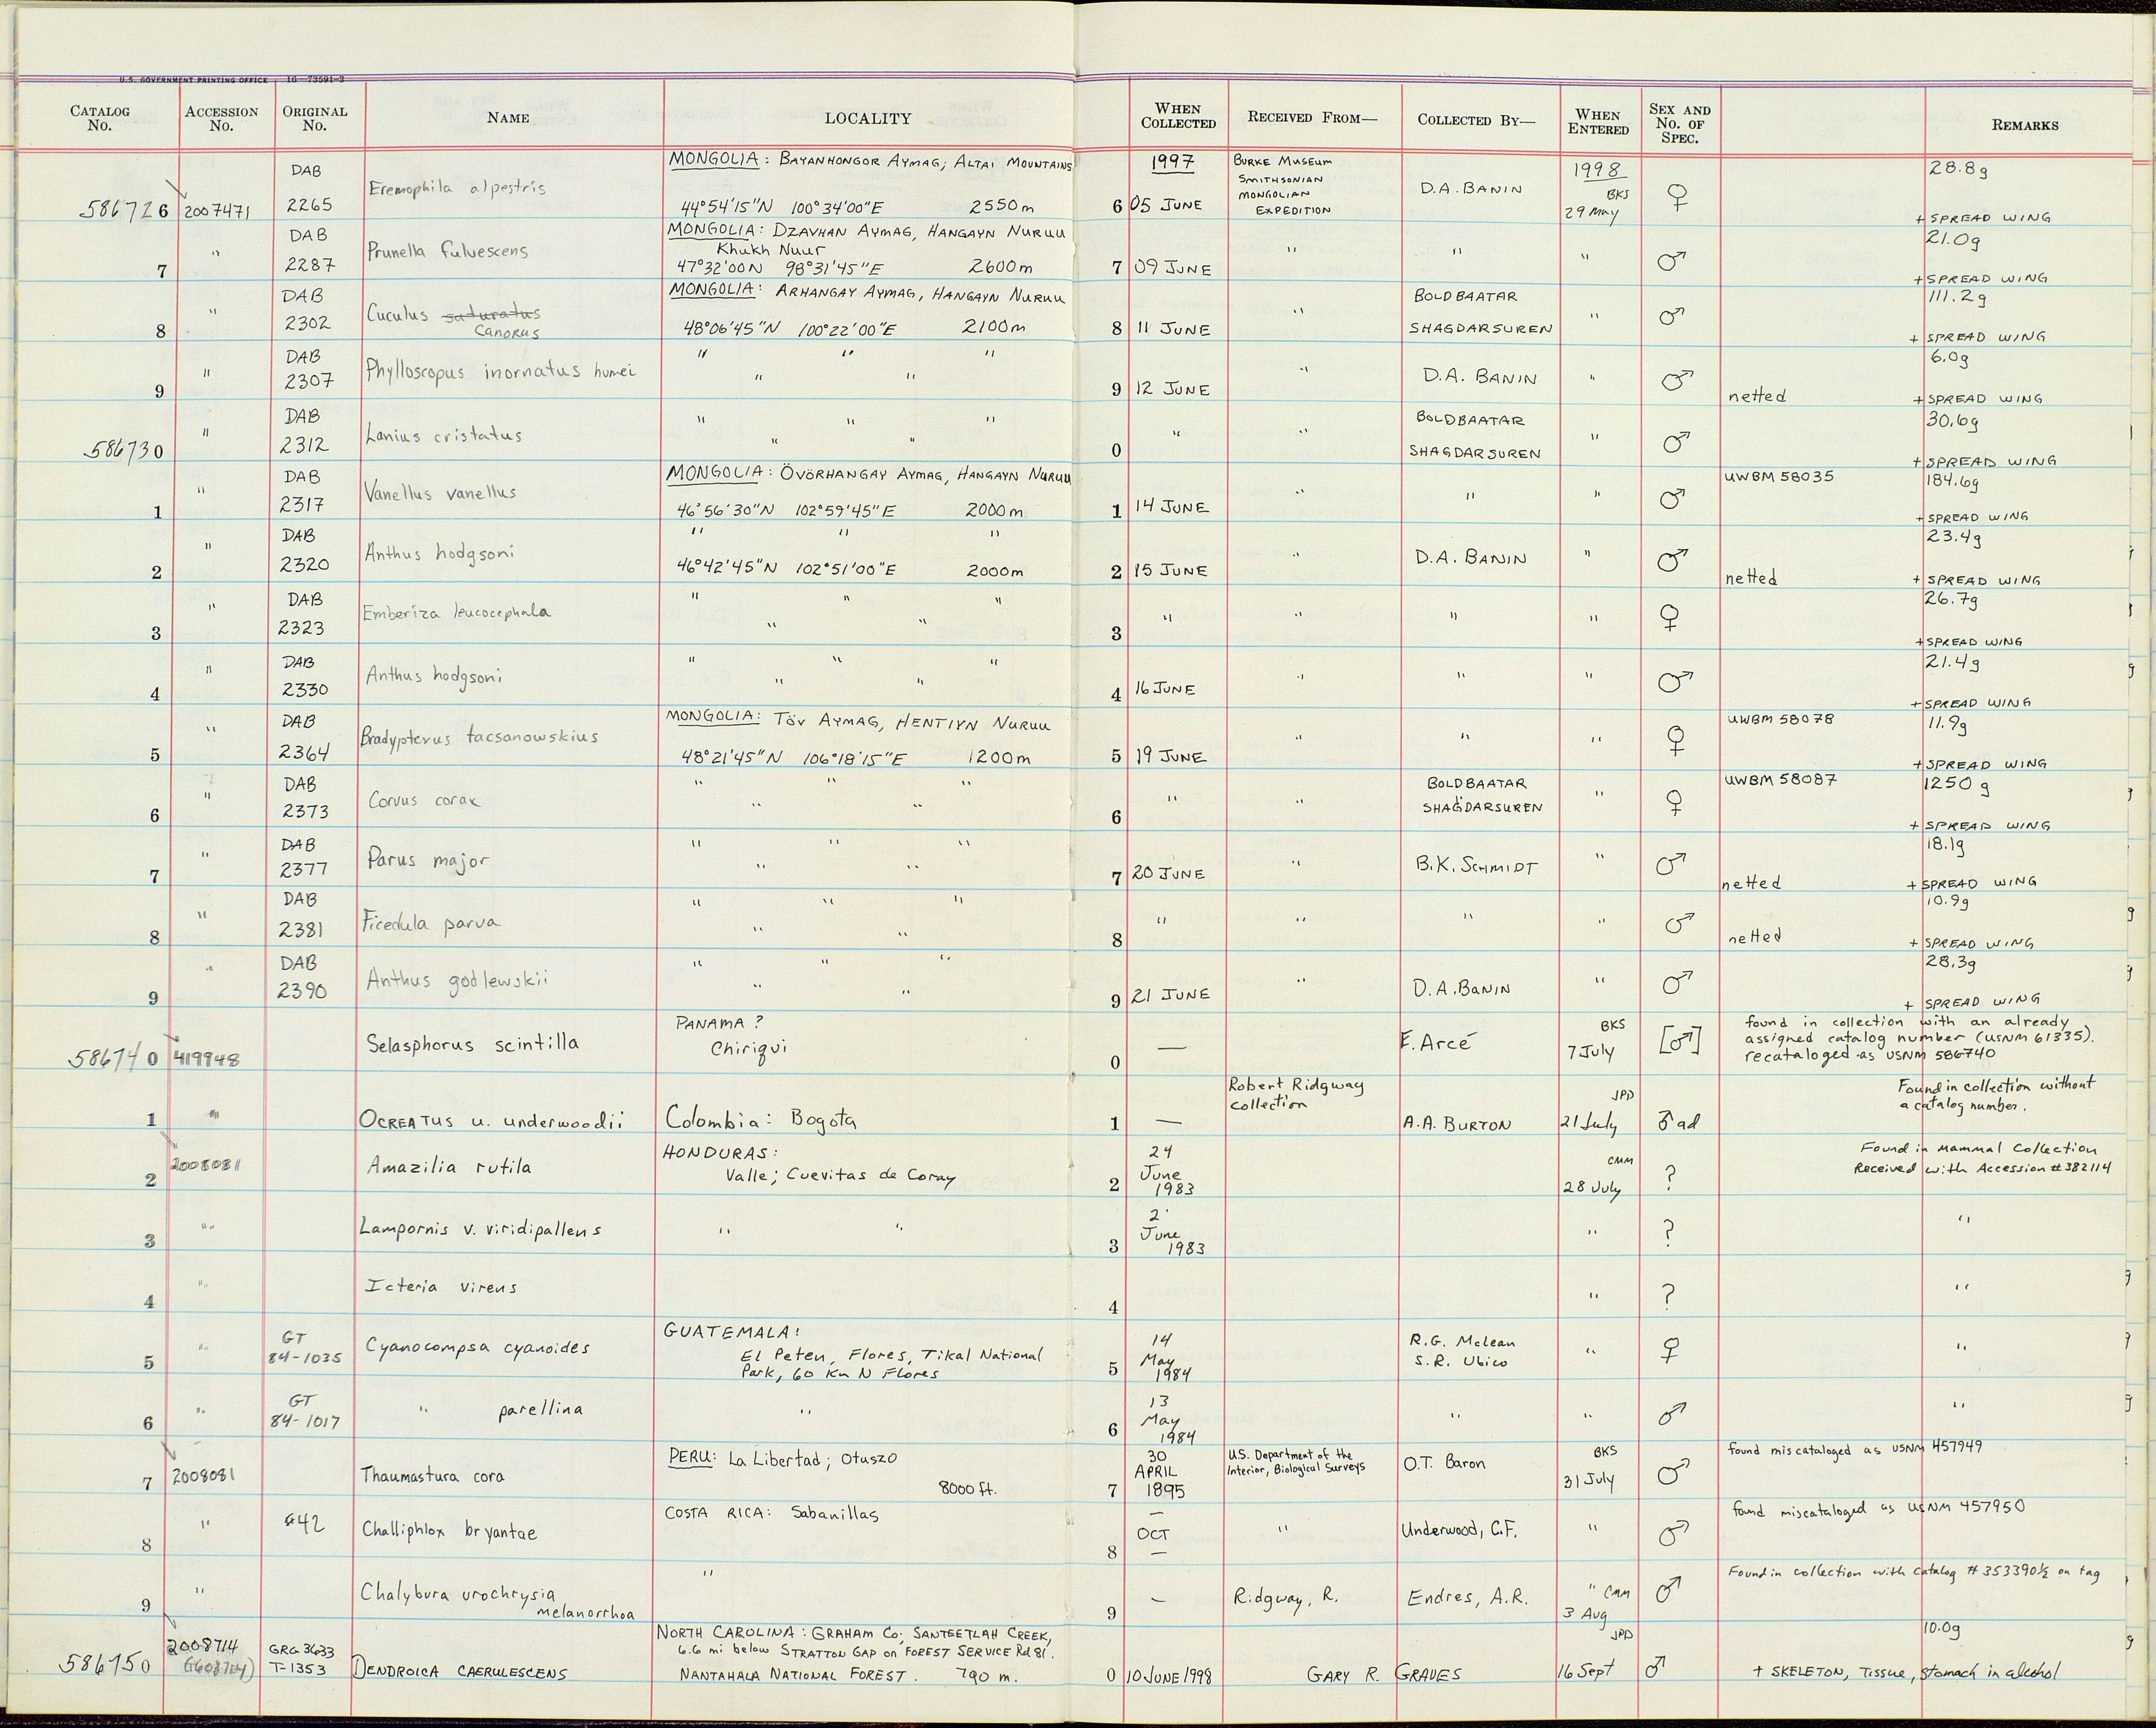 U.S. GOVERNMENT PRINTING OFFICE 16—73591-3
CATALOG No. ACCESSION No. ORIGINAL No. NAME LOCALITY WHEN COLLECTED RECEIVED FROM— COLLECTED BY— WHEN ENTERED SEX AND No. OF SPEC. REMARKS
DAB MONGOLIA: BAYANHONGOR AYMAG; ALTAI MOUNTAINS 1997 BURKE MUSEUM 1998 28.8g
Eremophila alpestris SMITHSONIAN MONGOLIAN D.A. BANIN BKS ♀
586726 2007471 2265 44°54'15"N 100°34'00"E 2550m 6 05 JUNE EXPEDITION 29 May + SPREAD WING
DAB MONGOLIA: DZAVHAN AYMAG, HANGAYN NURUU 21.0g
" Prunella fulvescens Khukh Nuur " " " ♂
7 2287 47°32'00N 98°31'45"E 2600m 7 09 JUNE + SPREAD WING
DAB MONGOLIA: ARHANGAY AYMAG, HANGAYN NURUU BOLDBAATAR 111.2g
" Cuculus saturatus " " ♂
8 2302 Canorus 48°06'45"N 100°22'00"E 2100m 8 11 JUNE SHAGDARSUREN + SPREAD WING
DAB " " " 6.0g
" Phylloscopus inornatus humei " " " D.A. BANIN " ♂
9 2307 9 12 JUNE netted + SPREAD WING
DAB " " " BOLDBAATAR 30.6g
" Lanius cristatus " " " " " ♂
586730 2312 0 SHAGDARSUREN + SPREAD WING
DAB MONGOLIA: ÖVÖRHANGAY AYMAG, HANGAYN NURUU UWBM 58035 184.6g
" Vanellus vanellus " " " ♂
1 2317 46°56'30"N 102°59'45"E 2000m 1 14 JUNE + SPREAD WING
DAB " " " 23.4g
" Anthus hodgsoni " D.A. BANIN " ♂
2 2320 46°42'45"N 102°51'00"E 2000m 2 15 JUNE netted + SPREAD WING
DAB " " " 26.7g
" Emberiza leucocephala " " " " " " ♀
3 2323 3 + SPREAD WING
DAB " " " 21.4g
" Anthus hodgsoni " " " " " ♂
4 2330 4 16 JUNE + SPREAD WING
DAB MONGOLIA: Töv AYMAG, HENTIYN NURUU UWBM 58078 11.9g
" Bradypterus tacsanowskius " " " ♀
5 2364 48°21'45"N 106°18'15"E 1200m 5 19 JUNE + SPREAD WING
DAB " " " BOLDBAATAR UWBM 58087 1250 g
" Corvus corax " " " " SHAGDARSUREN " ♀
6 2373 6 + SPREAD WING
DAB " " " 18.1g
" Parus major " " " B.K. SCHMIDT " ♂
7 2377 7 20 JUNE netted + SPREAD WING
DAB " " " 10.9g
" Ficedula parva " " " " " " ♂
8 2381 8 netted + SPREAD WING
DAB " " " 28.3g
" Anthus godlewskii " " " D.A. BANIN " ♂
9 2390 9 21 JUNE + SPREAD WING
PANAMA ? BKS found in collection with an already
Selasphorus scintilla Chiriqui — E. Arcé [♂] assigned catalog number (USNM 61335).
586740 419948 0 7 July recataloged as USNM 586740
Robert Ridgway JPD Found in collection without
" collection a catalog number.
1 OCREATUS u. underwoodii Colombia: Bogota 1 — A.A. BURTON 21 July ♂ ad
HONDURAS: 24 CMM Found in Mammal Collection
2008081 Amazilia rutila Valle; Cuevitas de Coray June Received with Accession # 382114
2 2 1983 28 July ?
2
" Lampornis v. viridipallens " " June " ? "
3 3 1983
" Icteria virens " ? "
4 4
GT GUATEMALA: 14 R.G. McLean
" 84-1035 Cyanocompsa cyanoides El Peten, Flores, Tikal National May S.R. Ubico " ♀ "
5 Park, 60 Km N Flores 5 1984
GT 13
" 84-1017 " parellina " May " " ♂ "
6 6 1984
PERU: La Libertad; Otuszo 30 U.S. Department of the BKS found miscataloged as USNM 457949
2008081 Thaumastura cora APRIL Interior, Biological Surveys O.T. Baron ♂
7 8000 ft. 7 1895 31 July
COSTA RICA: Sabanillas — found miscataloged as USNM 457950
" 42 Challiphlox bryantae OCT " Underwood, C.F. " ♂
8 8 —
" Found in collection with Catalog # 353390½ on tag
" Chalybura urochrysia — Ridgway, R. Endres, A.R. " CMM ♂
9 melanorrhoa 9 3 Aug
NORTH CAROLINA: GRAHAM Co; SANTEETLAH CREEK, JPD 10.0g
2008714 GRG 3633 6.6 mi below STRATTON GAP on FOREST SERVICE Rd 81.
586750 T-1353 DENDROICA CAERULESCENS NANTAHALA NATIONAL FOREST. 790 m. 0 10 JUNE 1998 GARY R. GRAVES 16 Sept ♂ + SKELETON, Tissue, stomach in alcohol